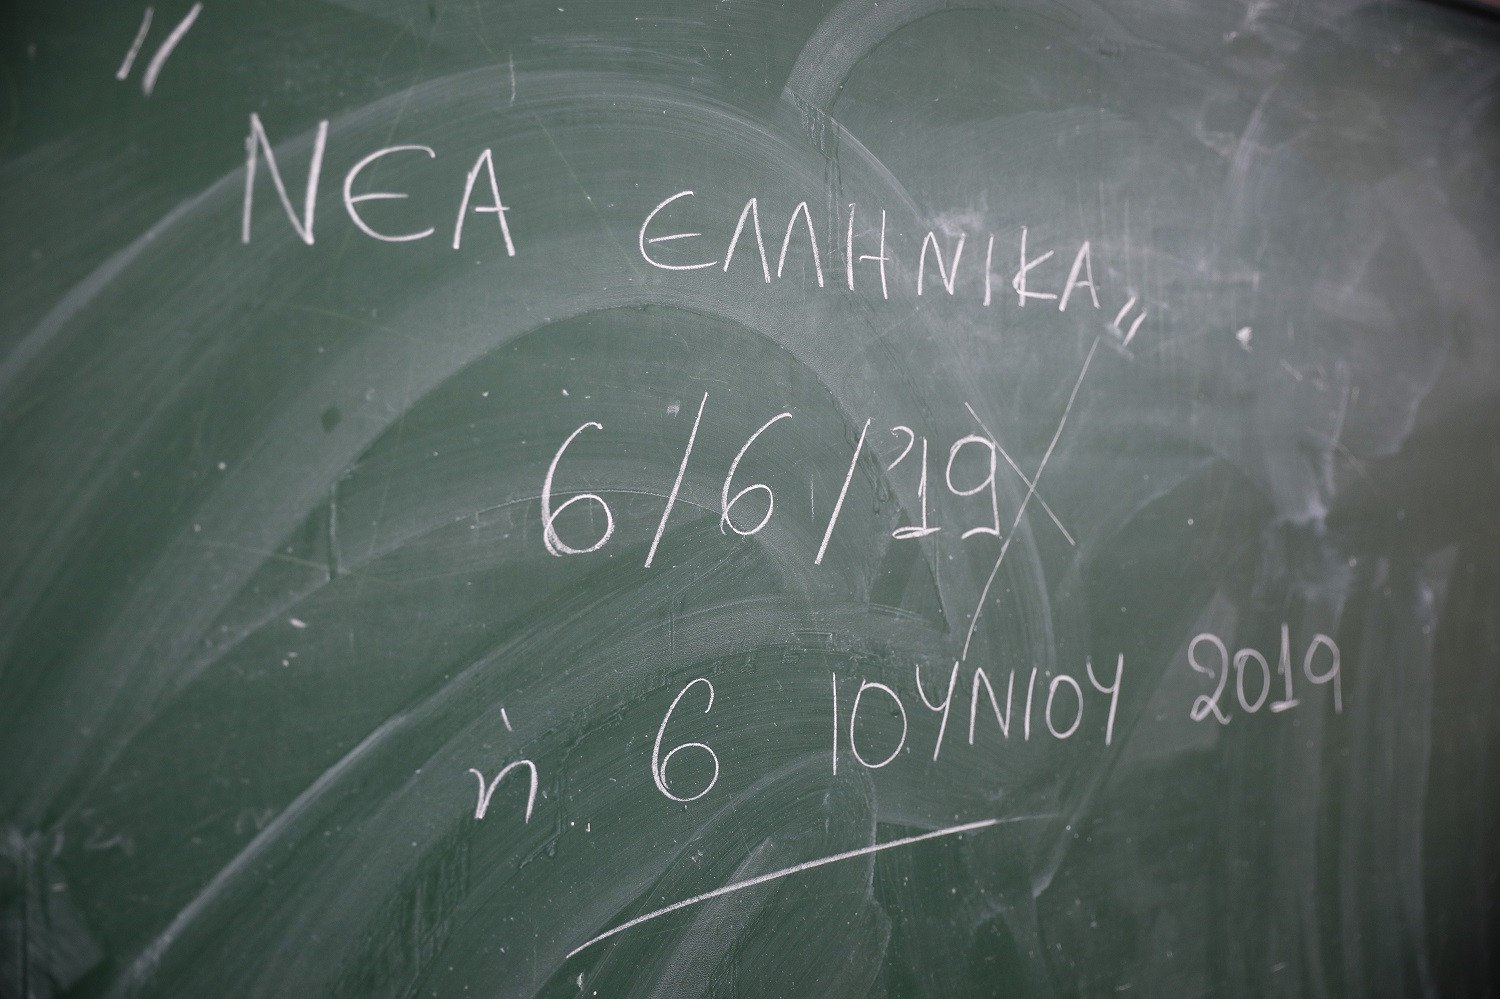 "ΝΕΑ ΕΛΛΗΝΙΚΑ"
6/6/'19
ή 6 ΙΟΥΝΙΟΥ 2019